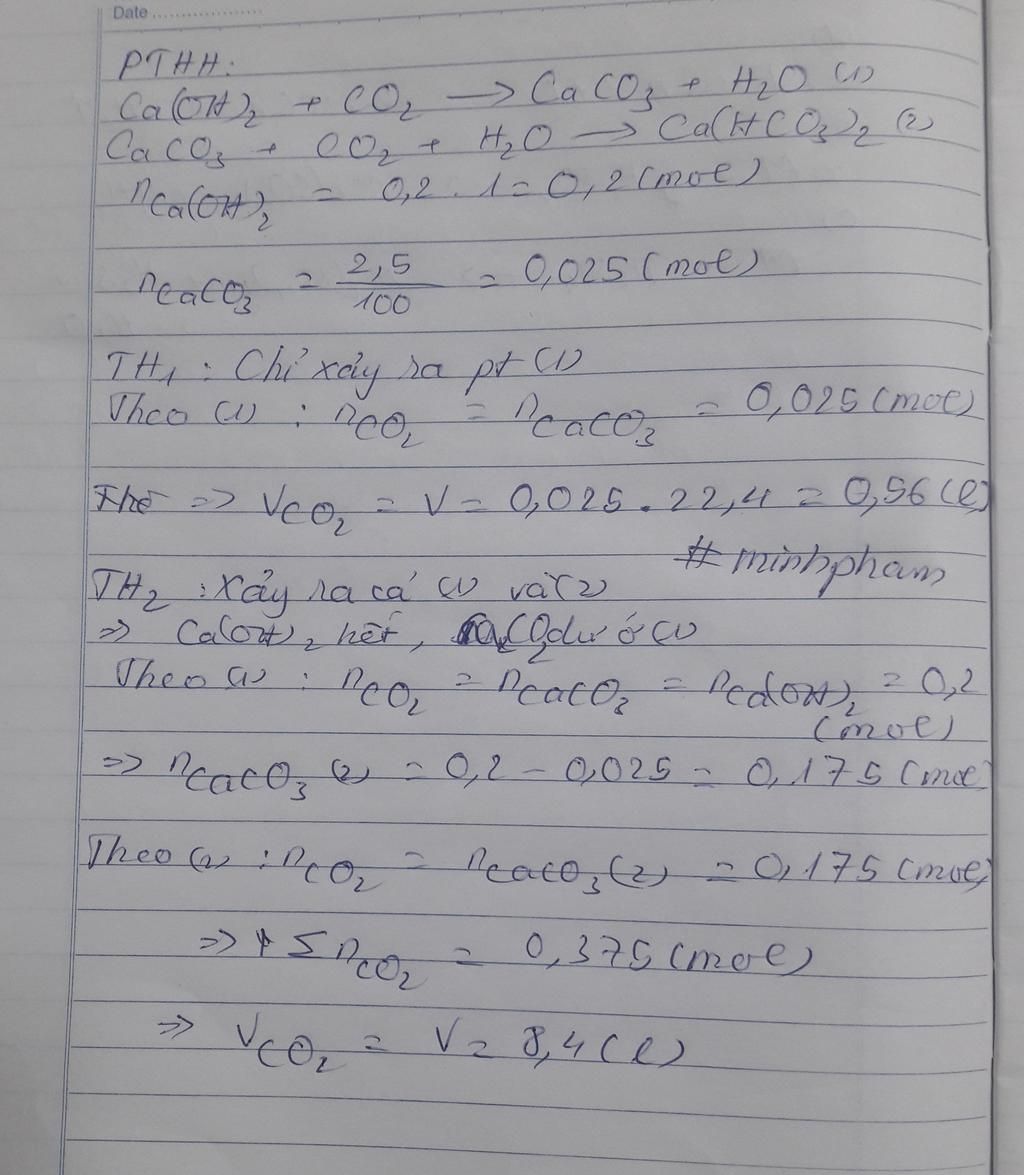 Date ....................
PTHH:
Ca(OH)₂ + CO₂ → CaCO₃ + H₂O (1)
CaCO₃ + CO₂ + H₂O → Ca(HCO₃)₂ (2)
nCa(OH)₂ = 0,2 . 1 = 0,2 (mol)
nCaCO₃ = 2,5/100 = 0,025 (mol)
TH₁ : Chỉ xảy ra pt (1)
Theo (1) : nCO₂ = nCaCO₃ = 0,025 (mol)
=> VCO₂ = V = 0,025 . 22,4 = 0,56 (l)
# minhpham
TH₂ : Xảy ra cả (1) và (2)
=> Ca(OH)₂ hết, CO₂ dư ở (1)
Theo (1) : nCO₂ = nCaCO₃ = nCa(OH)₂ = 0,2
(mol)
=> nCaCO₃ (2) = 0,2 - 0,025 = 0,175 (mol)
Theo (2) : nCO₂ = nCaCO₃ (2) = 0,175 (mol)
=> Σ nCO₂ = 0,375 (mol)
=> VCO₂ = V = 8,4 (l)